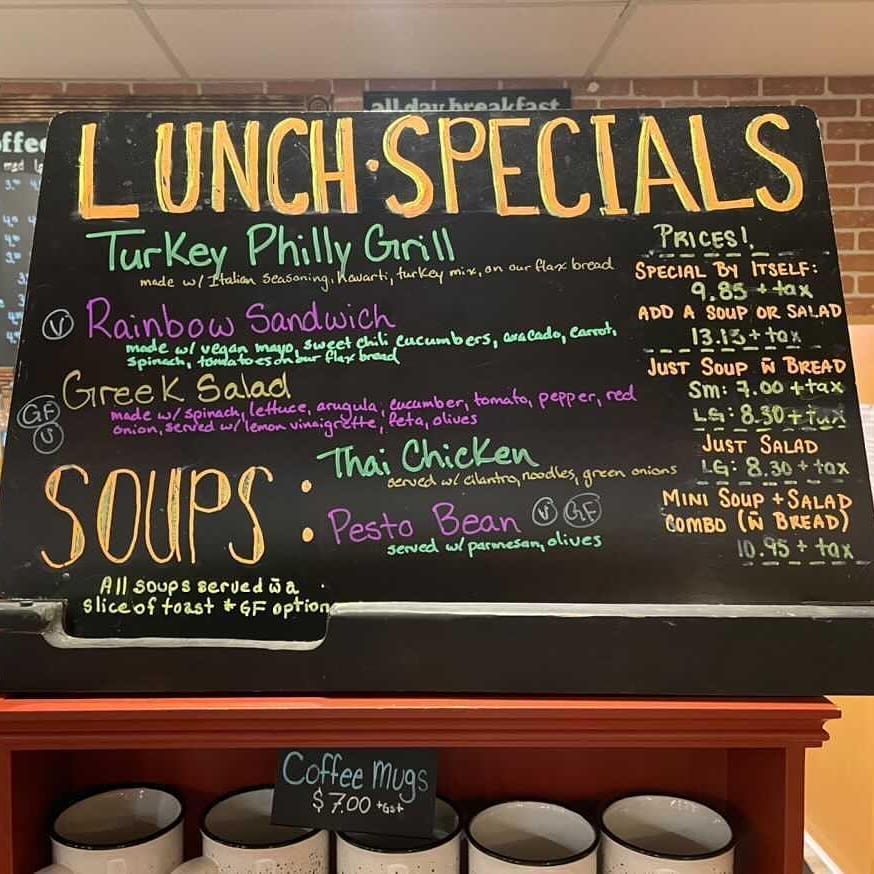 all day breakfast
ffee
med
LUNCH·SPECIALS
Turkey Philly Grill
made w/ Italian seasoning, Havarti, turkey mix, on our flax bread
V Rainbow Sandwich
made w/ vegan mayo, sweet chili cucumbers, avacado, carrot,
spinach, tomatoes on our flax bread
GF V Greek Salad
made w/ spinach, lettuce, arugula, cucumber, tomato, pepper, red
onion, served w/ lemon vinaigrette, feta, olives
SOUPS:
Thai Chicken
served w/ cilantro, noodles, green onions
Pesto Bean V GF
served w/ parmesan, olives
All soups served w̄ a
slice of toast * GF option
PRICES!
SPECIAL BY ITSELF:
9.85 + tax
ADD A SOUP OR SALAD
13.15 + tax
JUST SOUP w̄ BREAD
Sm: 7.00 + tax
LG: 8.30 + tax
JUST SALAD
LG: 8.30 + tax
MINI SOUP + SALAD
COMBO (w̄ BREAD)
10.95 + tax
Coffee Mugs
$7.00 +Gst